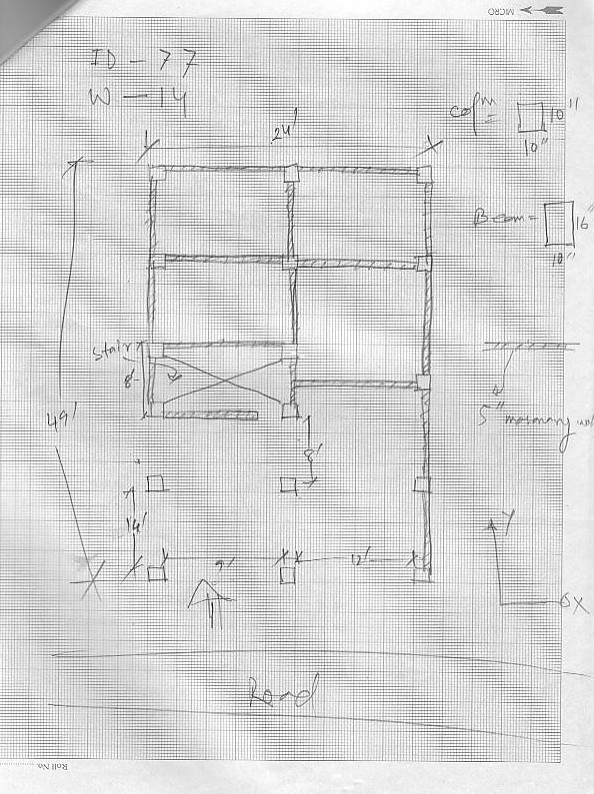 MICRO
ID - 77
W - 14
24'
colm =
10"
10"
Beam =
16"
10"
Stair
8'
49'
5" masonary wall
8'
14'
9'
12'
Y
X
Road
Roll No.